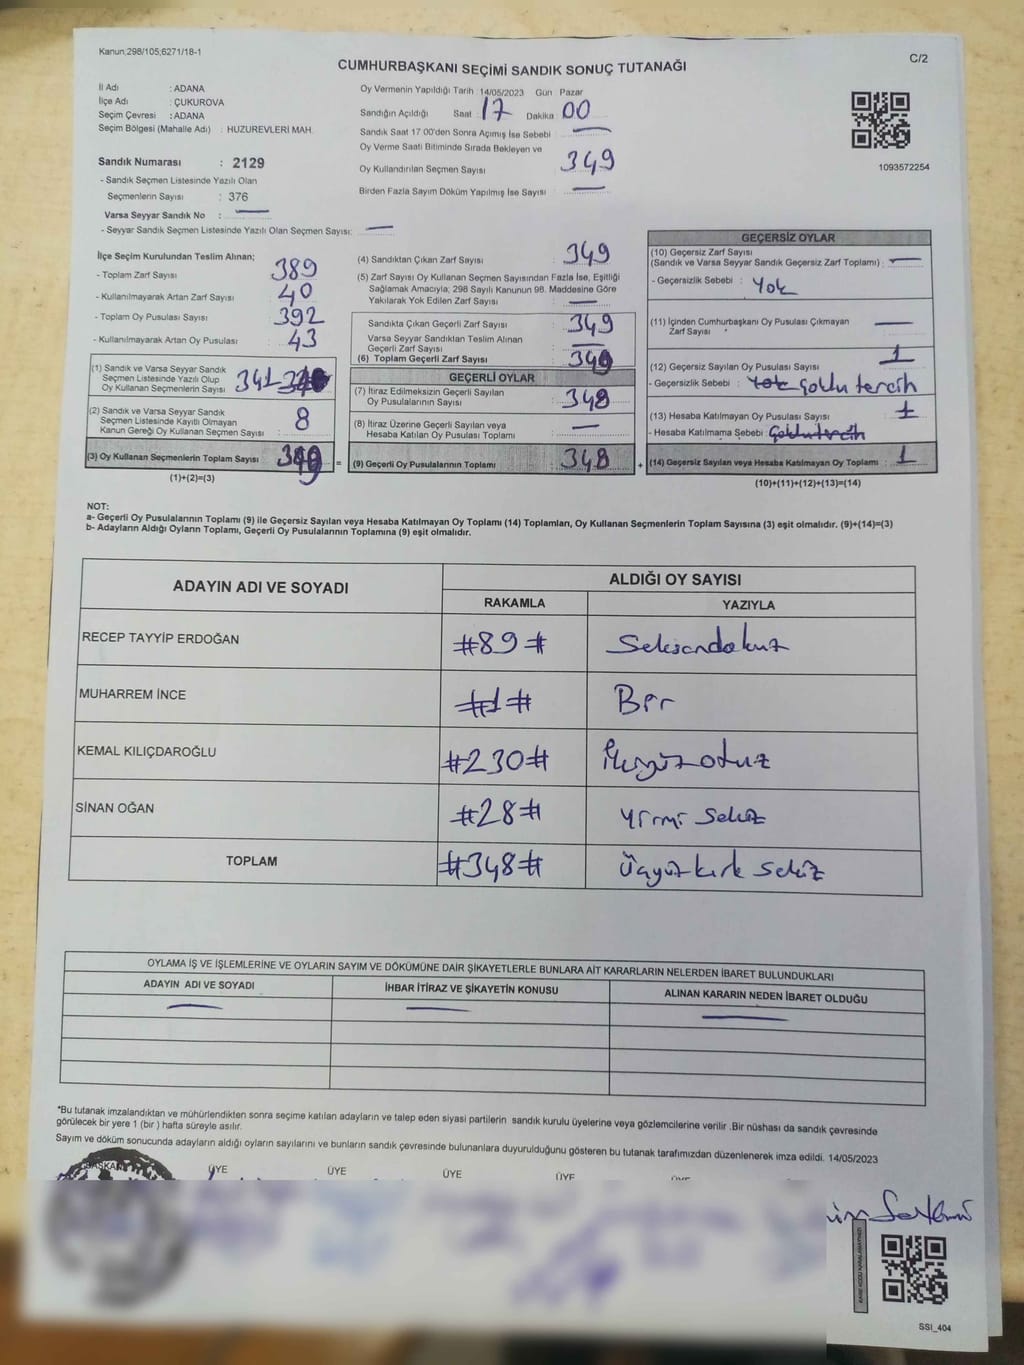 Kanun;298/105;6271/18-1
C/2
CUMHURBAŞKANI SEÇİMİ SANDIK SONUÇ TUTANAĞI
İl Adı : ADANA
İlçe Adı : ÇUKUROVA
Seçim Çevresi : ADANA
Seçim Bölgesi (Mahalle Adı) : HUZUREVLERİ MAH.
Sandık Numarası : 2129
- Sandık Seçmen Listesinde Yazılı Olan
Seçmenlerin Sayısı : 376
Varsa Seyyar Sandık No : —
- Seyyar Sandık Seçmen Listesinde Yazılı Olan Seçmen Sayısı: —
Oy Vermenin Yapıldığı Tarih : 14/05/2023 Gün : Pazar
Sandığın Açıldığı Saat : 17 Dakika : 00
Sandık Saat 17:00'den Sonra Açımış İse Sebebi : —
Oy Verme Saati Bitiminde Sırada Bekleyen ve
Oy Kullandırılan Seçmen Sayısı : 349
Birden Fazla Sayım Döküm Yapılmış İse Sayısı : —
1093572254
İlçe Seçim Kurulundan Teslim Alınan;
- Toplam Zarf Sayısı : 389
- Kullanılmayarak Artan Zarf Sayısı : 40
- Toplam Oy Pusulası Sayısı : 392
- Kullanılmayarak Artan Oy Pusulası : 43
(1) Sandık ve Varsa Seyyar Sandık
Seçmen Listesinde Yazılı Olup
Oy Kullanan Seçmenlerin Sayısı : 341
(2) Sandık ve Varsa Seyyar Sandık
Seçmen Listesinde Kayıtlı Olmayan
Kanun Gereği Oy Kullanan Seçmen Sayısı : 8
(3) Oy Kullanan Seçmenlerin Toplam Sayısı : 349 =
(1)+(2)=(3)
(4) Sandıktan Çıkan Zarf Sayısı : 349
(5) Zarf Sayısı Oy Kullanan Seçmen Sayısından Fazla İse, Eşitliği
Sağlamak Amacıyla; 298 Sayılı Kanunun 98. Maddesine Göre
Yakılarak Yok Edilen Zarf Sayısı : —
Sandıkta Çıkan Geçerli Zarf Sayısı : 349
Varsa Seyyar Sandıktan Teslim Alınan
Geçerli Zarf Sayısı : —
(6) Toplam Geçerli Zarf Sayısı : 349
GEÇERLİ OYLAR
(7) İtiraz Edilmeksizin Geçerli Sayılan
Oy Pusulalarının Sayısı : 348
(8) İtiraz Üzerine Geçerli Sayılan veya
Hesaba Katılan Oy Pusulaları Toplamı : —
(9) Geçerli Oy Pusulalarının Toplamı : 348 +
GEÇERSİZ OYLAR
(10) Geçersiz Zarf Sayısı
(Sandık ve Varsa Seyyar Sandık Geçersiz Zarf Toplamı) : —
- Geçersizlik Sebebi : Yok
(11) İçinden Cumhurbaşkanı Oy Pusulası Çıkmayan
Zarf Sayısı : —
(12) Geçersiz Sayılan Oy Pusulası Sayısı : 1
- Geçersizlik Sebebi : Yok çoklu tercih
(13) Hesaba Katılmayan Oy Pusulası Sayısı : 1
- Hesaba Katılmama Sebebi : Çoklu tercih
(14) Geçersiz Sayılan veya Hesaba Katılmayan Oy Toplamı : 1
(10)+(11)+(12)+(13)=(14)
NOT:
a- Geçerli Oy Pusulalarının Toplamı (9) ile Geçersiz Sayılan veya Hesaba Katılmayan Oy Toplamı (14) Toplamları, Oy Kullanan Seçmenlerin Toplam Sayısına (3) eşit olmalıdır. (9)+(14)=(3)
b- Adayların Aldığı Oyların Toplamı, Geçerli Oy Pusulalarının Toplamına (9) eşit olmalıdır.
ADAYIN ADI VE SOYADI
ALDIĞI OY SAYISI
RAKAMLA YAZIYLA
RECEP TAYYİP ERDOĞAN #89# Seksandokuz
MUHARREM İNCE #1# Bir
KEMAL KILIÇDAROĞLU #230# İkiyüzotuz
SİNAN OĞAN #28# Yirmi Sekiz
TOPLAM #348# Üçyüzkırk Sekiz
OYLAMA İŞ VE İŞLEMLERİNE VE OYLARIN SAYIM VE DÖKÜMÜNE DAİR ŞİKAYETLERLE BUNLARA AİT KARARLARIN NELERDEN İBARET BULUNDUKLARI
ADAYIN ADI VE SOYADI İHBAR İTİRAZ VE ŞİKAYETİN KONUSU ALINAN KARARIN NEDEN İBARET OLDUĞU
— — —
*Bu tutanak imzalandıktan ve mühürlendikten sonra seçime katılan adayların ve talep eden siyasi partilerin sandık kurulu üyelerine veya gözlemcilerine verilir .Bir nüshası da sandık çevresinde
görülecek bir yere 1 (bir ) hafta süreyle asılır.
Sayım ve döküm sonucunda adayların aldığı oyların sayılarını ve bunların sandık çevresinde bulunanlara duyurulduğunu gösteren bu tutanak tarafımızdan düzenlenerek imza edildi. 14/05/2023
BAŞKAN ÜYE ÜYE ÜYE ÜYE ÜYE
SSİ_404